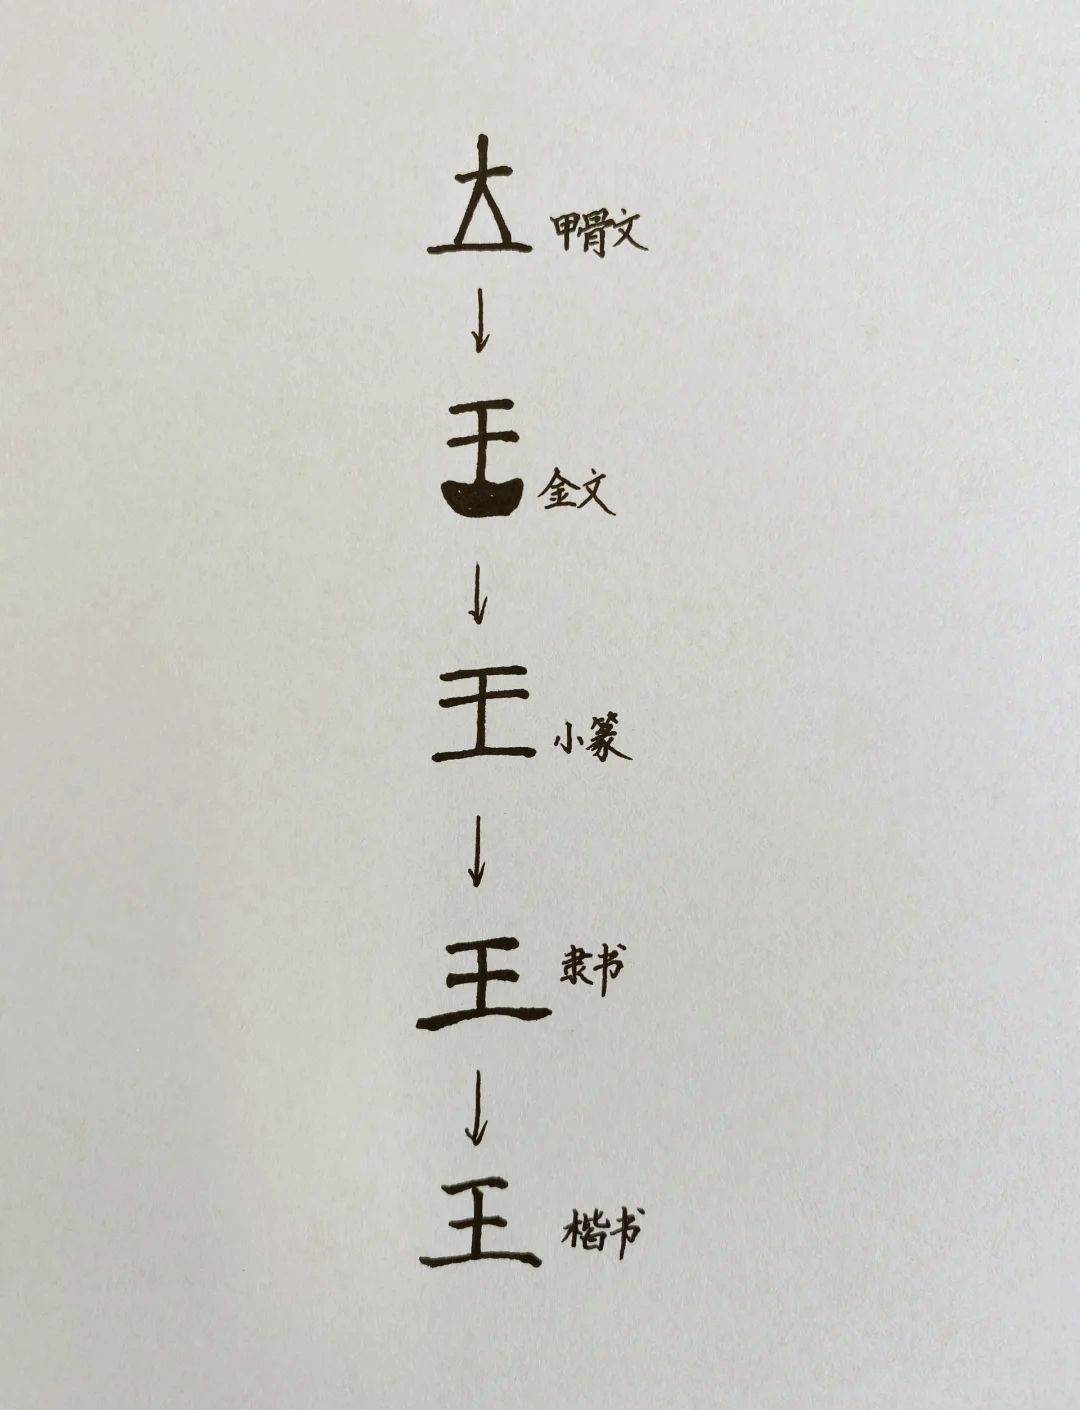 甲骨文
↓
王 金文
↓
王 小篆
↓
王 隶书
↓
王 楷书